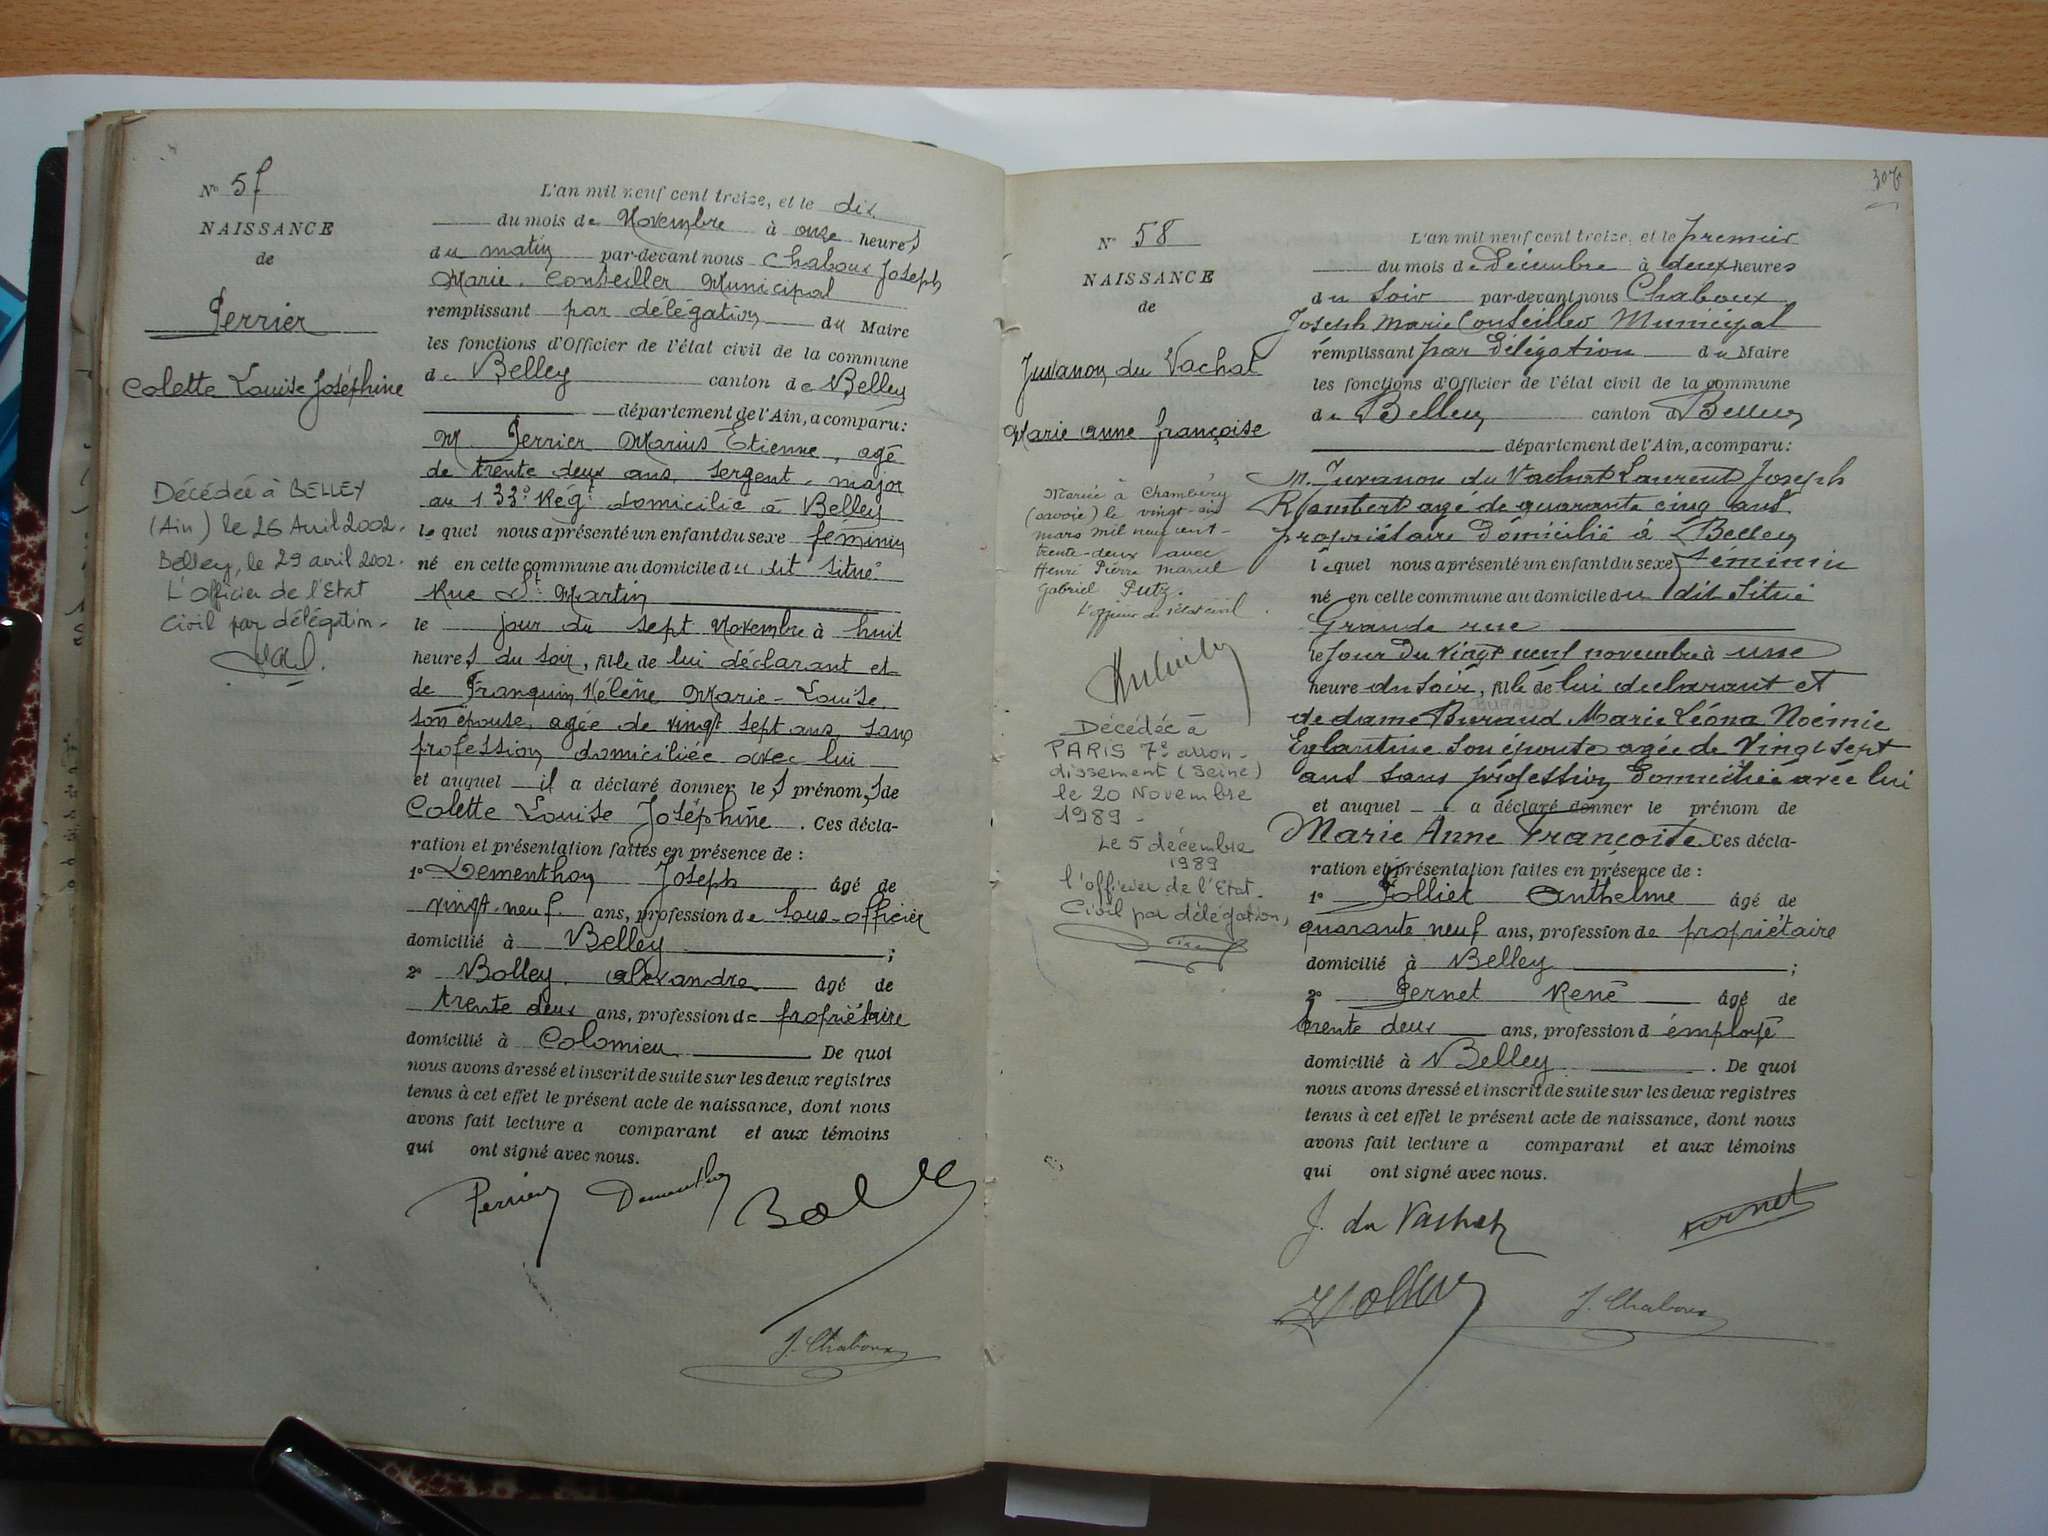 N° 57
NAISSANCE
de
Perrier
Colette Louise Joséphine
Décédée à BELLEY
(Ain) le 26 Avril 2002.
Belley, le 29 avril 2002.
L'officier de l'Etat
Civil par délégation.
L'an mil neuf cent treize, et le dix
du mois de Novembre à onze heures
du matin par-devant nous Chaboux Joseph
Marie, Conseiller Municipal
remplissant par délégation du Maire
les fonctions d'Officier de l'état civil de la commune
de Belley canton de Belley
département de l'Ain, a comparu:
M. Perrier Marius Etienne, agé
de trente deux ans, sergent-major
au 133e Régt domicilié à Belley
lequel nous a présenté un enfant du sexe féminin
né en cette commune au domicile du dit situé
Rue St Martin
le jour du sept Novembre à huit
heures du soir, fille de lui déclarant et
de Franquin Hélène Marie-Louise,
son épouse, agée de vingt sept ans, sans
profession domiciliée avec lui
et auquel il a déclaré donner les prénoms de
Colette Louise Joséphine. Ces décla-
ration et présentation faites en présence de :
1° Dementhon Joseph âgé de
vingt-neuf ans, profession de sous-officier
domicilié à Belley ;
2° Bolley Alexandre âgé de
trente deux ans, profession de propriétaire
domicilié à Colomieu De quoi
nous avons dressé et inscrit de suite sur les deux registres
tenus à cet effet le présent acte de naissance, dont nous
avons fait lecture a comparant et aux témoins
qui ont signé avec nous.
Perrier Dementhon Bolley
J. Chaboux
N° 58
NAISSANCE
de
Juvanon du Vachat
Marie Anne Françoise
Mariée à Chambéry
(Savoie) le vingt-six
mars mil neuf cent
trente-deux avec
Henri Pierre Marcel
Gabriel Putz.
L'officier de l'état civil
Décédée à
PARIS 7e arron-
dissement (Seine)
le 20 Novembre
1989 -
Le 5 décembre
1989
l'officier de l'Etat
Civil par délégation,
L'an mil neuf cent treize, et le premier
du mois de Décembre à deux heures
du soir par-devant nous Chaboux
Joseph Marie Conseiller Municipal
remplissant par délégation du Maire
les fonctions d'Officier de l'état civil de la commune
de Belley canton d Belley
département de l'Ain, a comparu:
M. Juvanon du Vachat Laurent Joseph
Rambert agé de quarante cinq ans
propriétaire domicilié à Belley
lequel nous a présenté un enfant du sexe féminin
né en cette commune au domicile du dit situé
Grande rue
le jour du vingt neuf novembre à une
heure du soir, fille de lui déclarant et
BURAUD
de dame Buraud Marie Léona Noémie
Eglantine son épouse agée de vingt sept
ans sans profession domiciliée avec lui
et auquel a déclaré donner le prénom de
Marie Anne Françoise. Ces décla-
ration et présentation faites en présence de :
1° Jolliet Anthelme âgé de
quarante neuf ans, profession de propriétaire
domicilié à Belley ;
2° Pernet René âgé de
trente deux ans, profession d employé
domicilié à Belley . De quoi
nous avons dressé et inscrit de suite sur les deux registres
tenus à cet effet le présent acte de naissance, dont nous
avons fait lecture a comparant et aux témoins
qui ont signé avec nous.
J. du Vachat Pernet
J. Chaboux